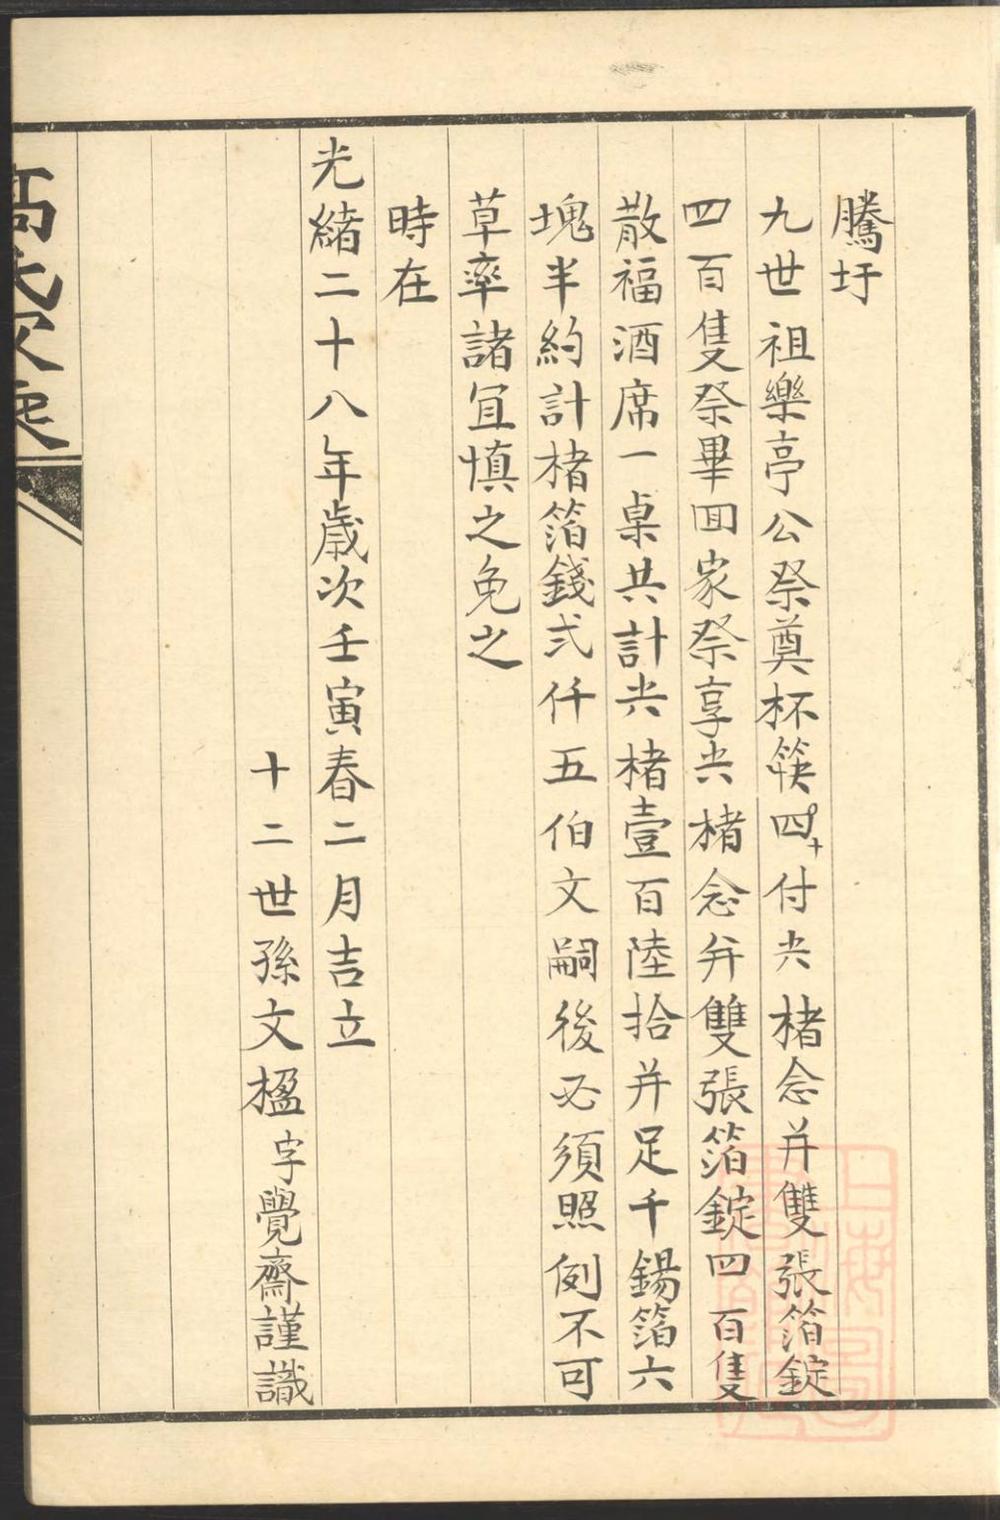 騰圩
九世祖樂亭公祭奠杯筷四十付大楮念并雙張箔錠
四百隻祭畢回家祭享大楮念并雙張箔錠四百隻
散福酒席一桌共計大楮壹百陸拾并足千錫箔六
塊半約計楮箔錢弍仟五伯文嗣後必須照例不可
草率諸宜慎之免之
時在
光緒二十八年歲次壬寅春二月吉立
十二世孫文楹字覺齋謹識
高氏家
上海圖